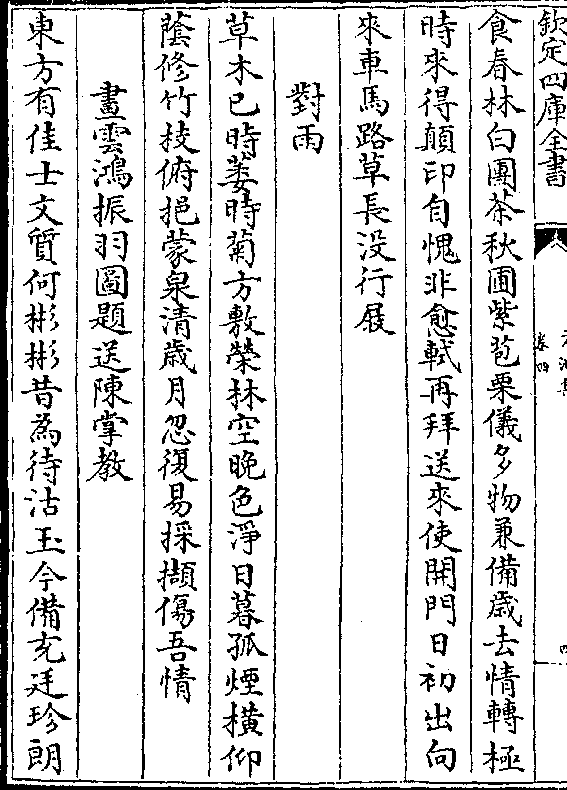 欽定四庫全書
卷四
食春林白團茶秋圃紫苞栗儀多物兼備歳去情轉極
時來得顛印自愧非愈軾再拜送來使開門日初出向
來車馬路草長没行屐
對雨
草木已時萎時菊方敷榮林空晚色淨日暮孤煙橫仰
蔭修竹技俯挹蒙泉清歳月忽復易採擷傷吾情
畫雲鴻振羽圖題送陳掌教
東方有佳士文質何彬彬昔為待沽玉今備充廷珍朗